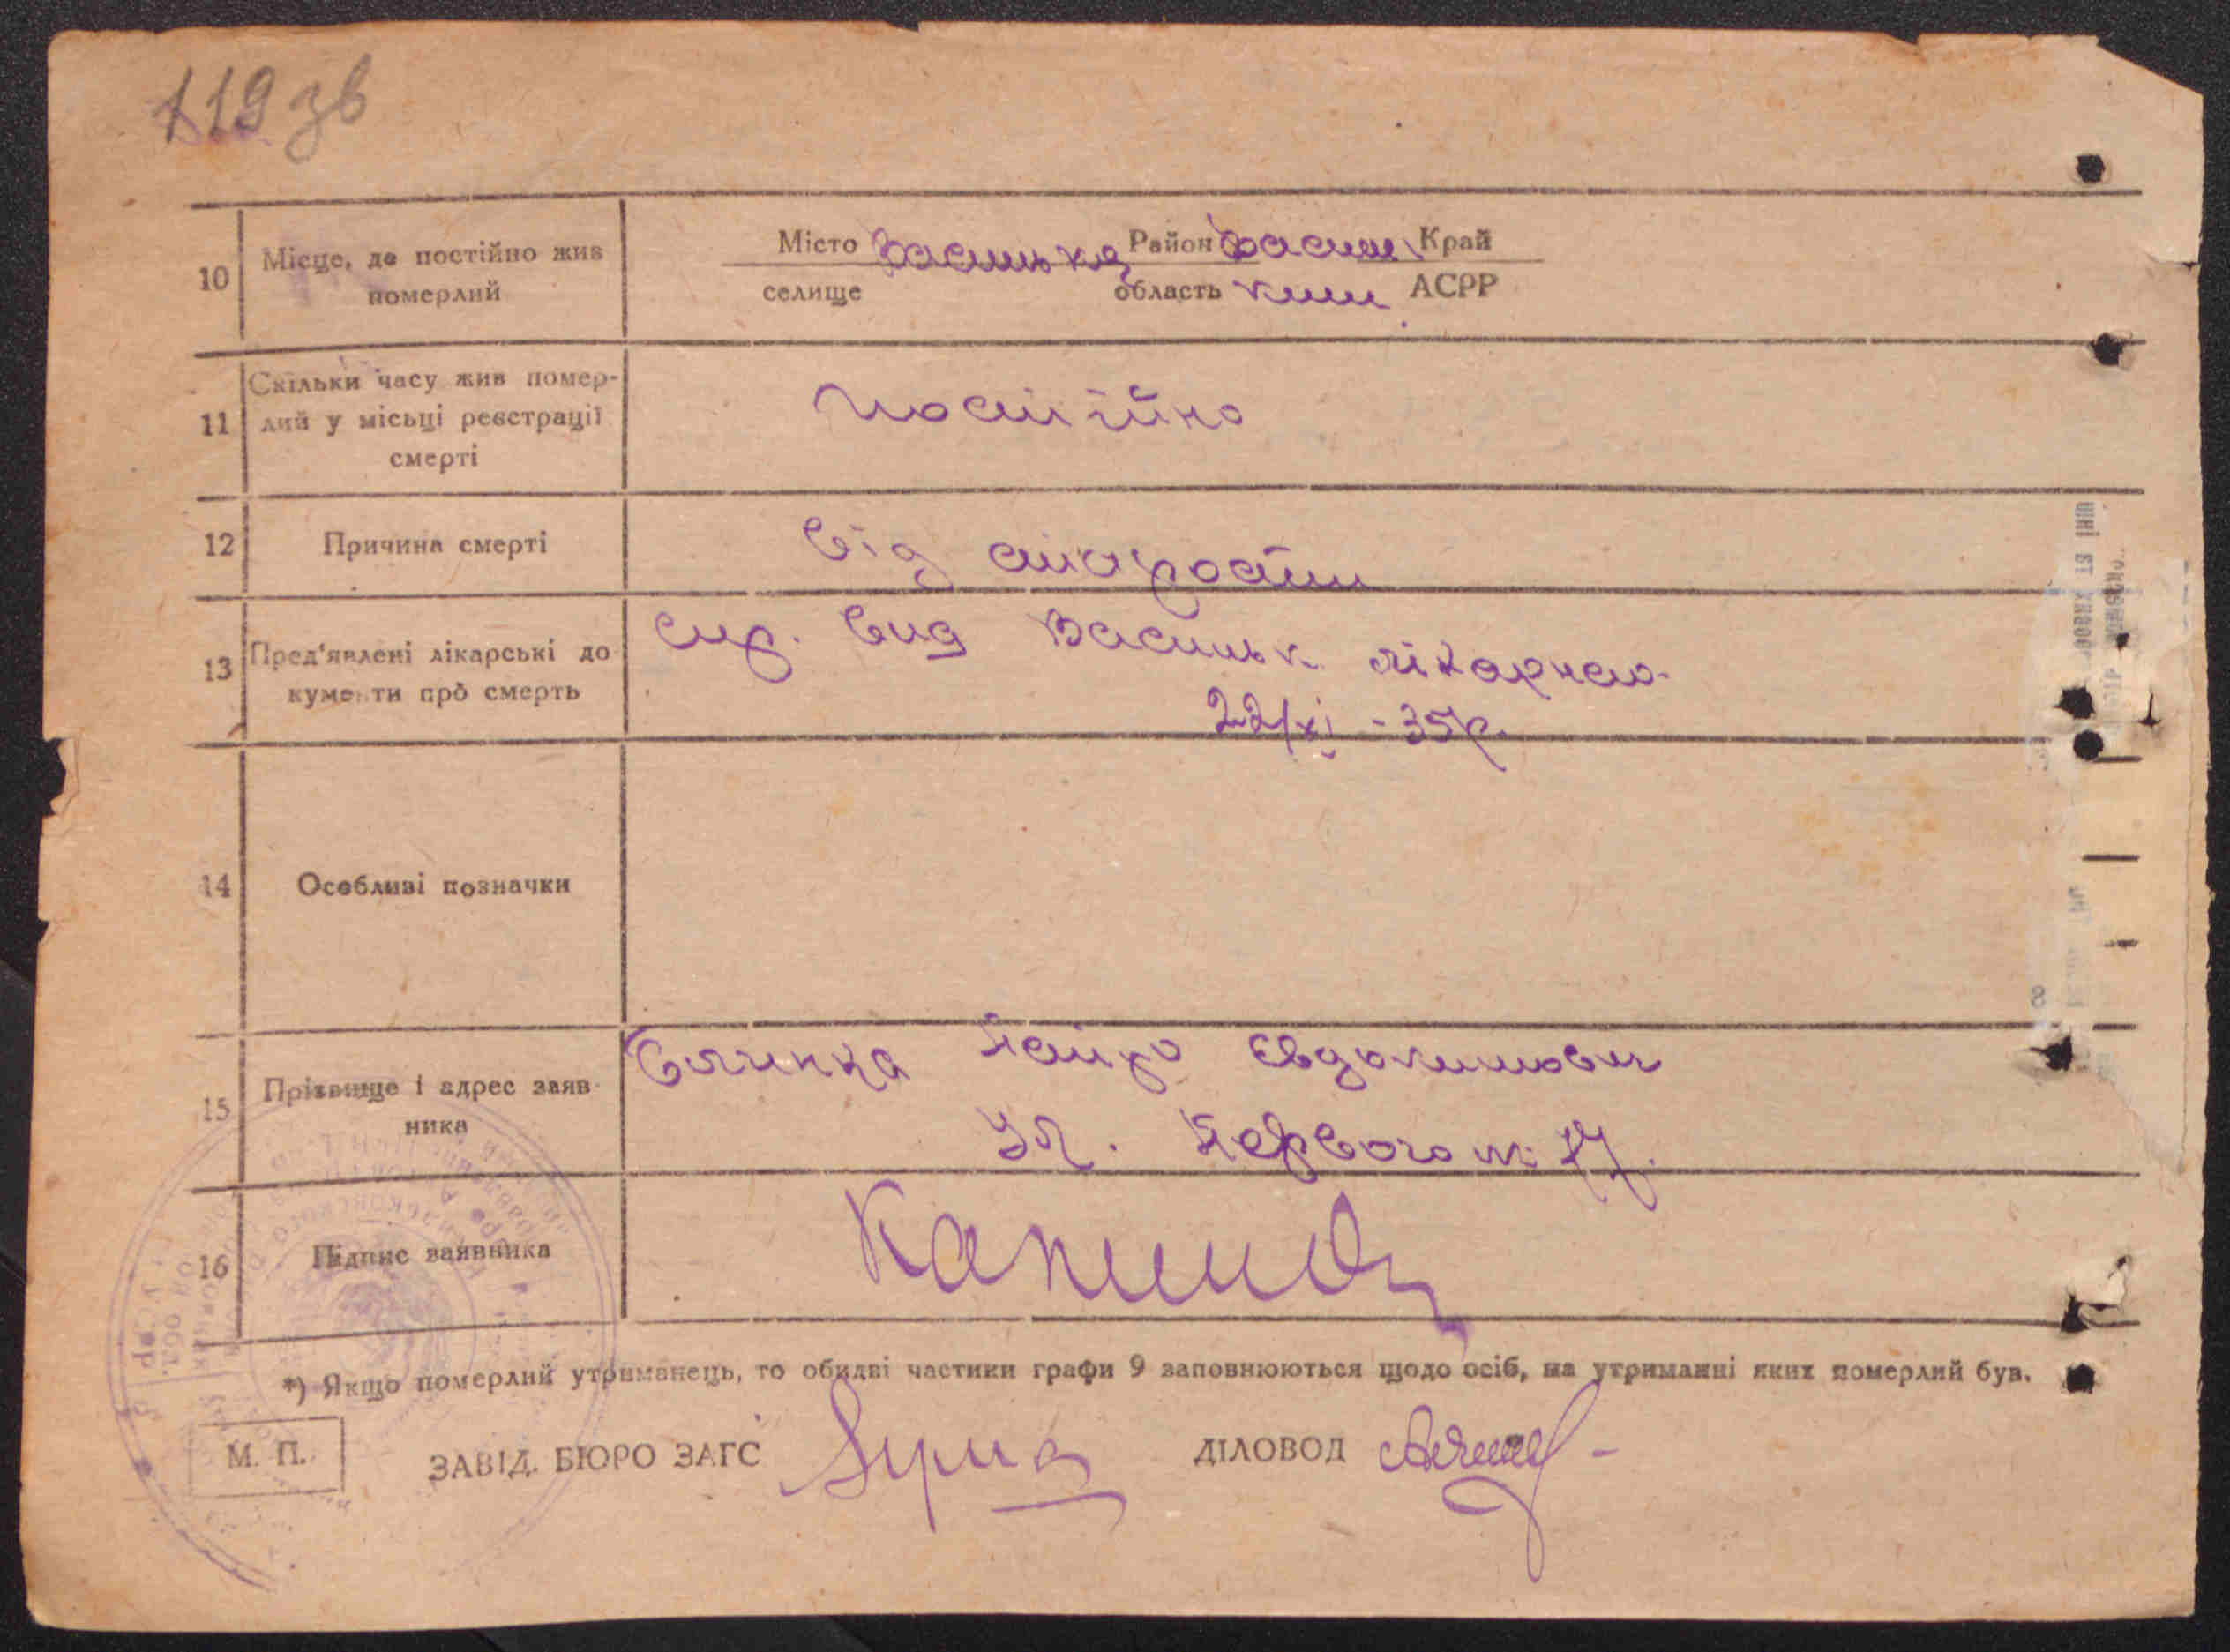 119 зв
10 Місце, де постійно жив
померлий
Місто Васильків Район Васильк Край
селище область Київ АСРР
11 Скільки часу жив помер-
лий у місьці реєстрації
смерті
постійно
12 Причина смерті
від старости
13 Пред'явлені лікарські до
кументи про смерть
спр. вид Васильк лікарнею
22/XI - 35 р.
14 Особливі позначки
15 Прізвище і адрес заяв
ника
Петро Євдокимович
Ул. Первого м. 17.
16 Підпис заявника
*) Якщо померлий утриманець, то обидві частики графи 9 заповнюються щодо осіб, на утриманні яких померлий був.
М. П.
ЗАВІД. БЮРО ЗАГС
ДІЛОВОД